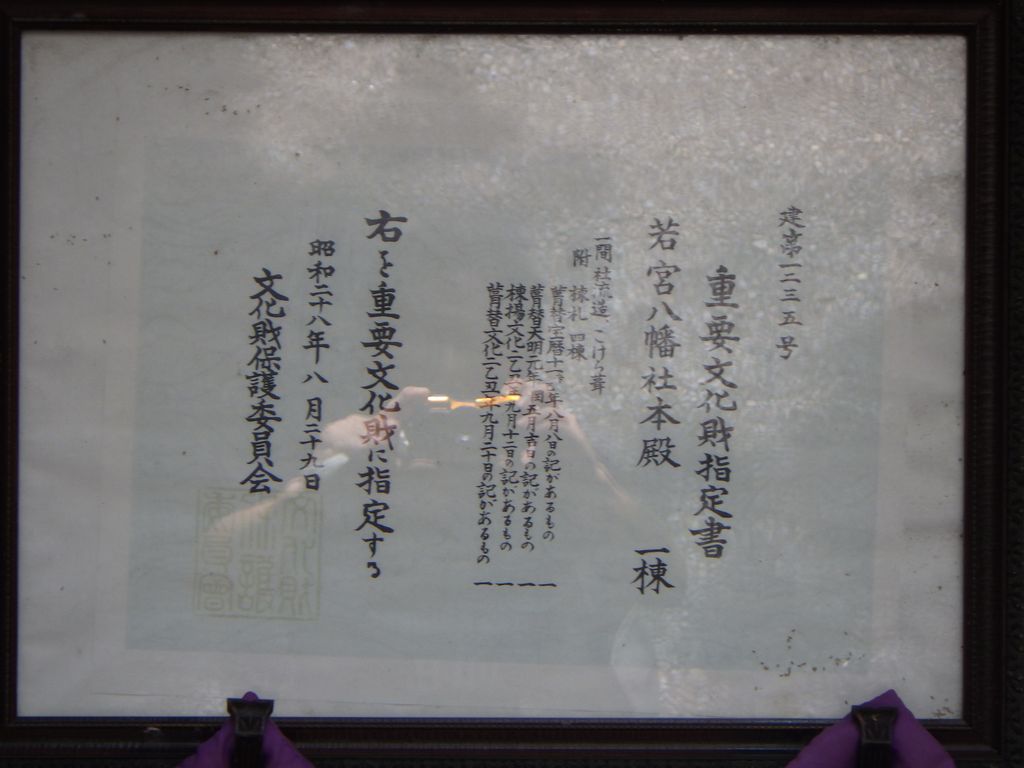 建第一二三五号
重要文化財指定書
若宮八幡社本殿 一棟
一間社流造、こけら葺
附
棟札 四棟
葺替宝暦十一 年八月八日の記があるもの 一
葺替天明元年閏五月吉日の記があるもの 一
棟揚文化二乙丑年九月十二日の記があるもの 一
葺替文化二乙丑年九月二十日の記があるもの 一
右を重要文化財に指定する
昭和二十八年八月二十九日
文化財保護委員会